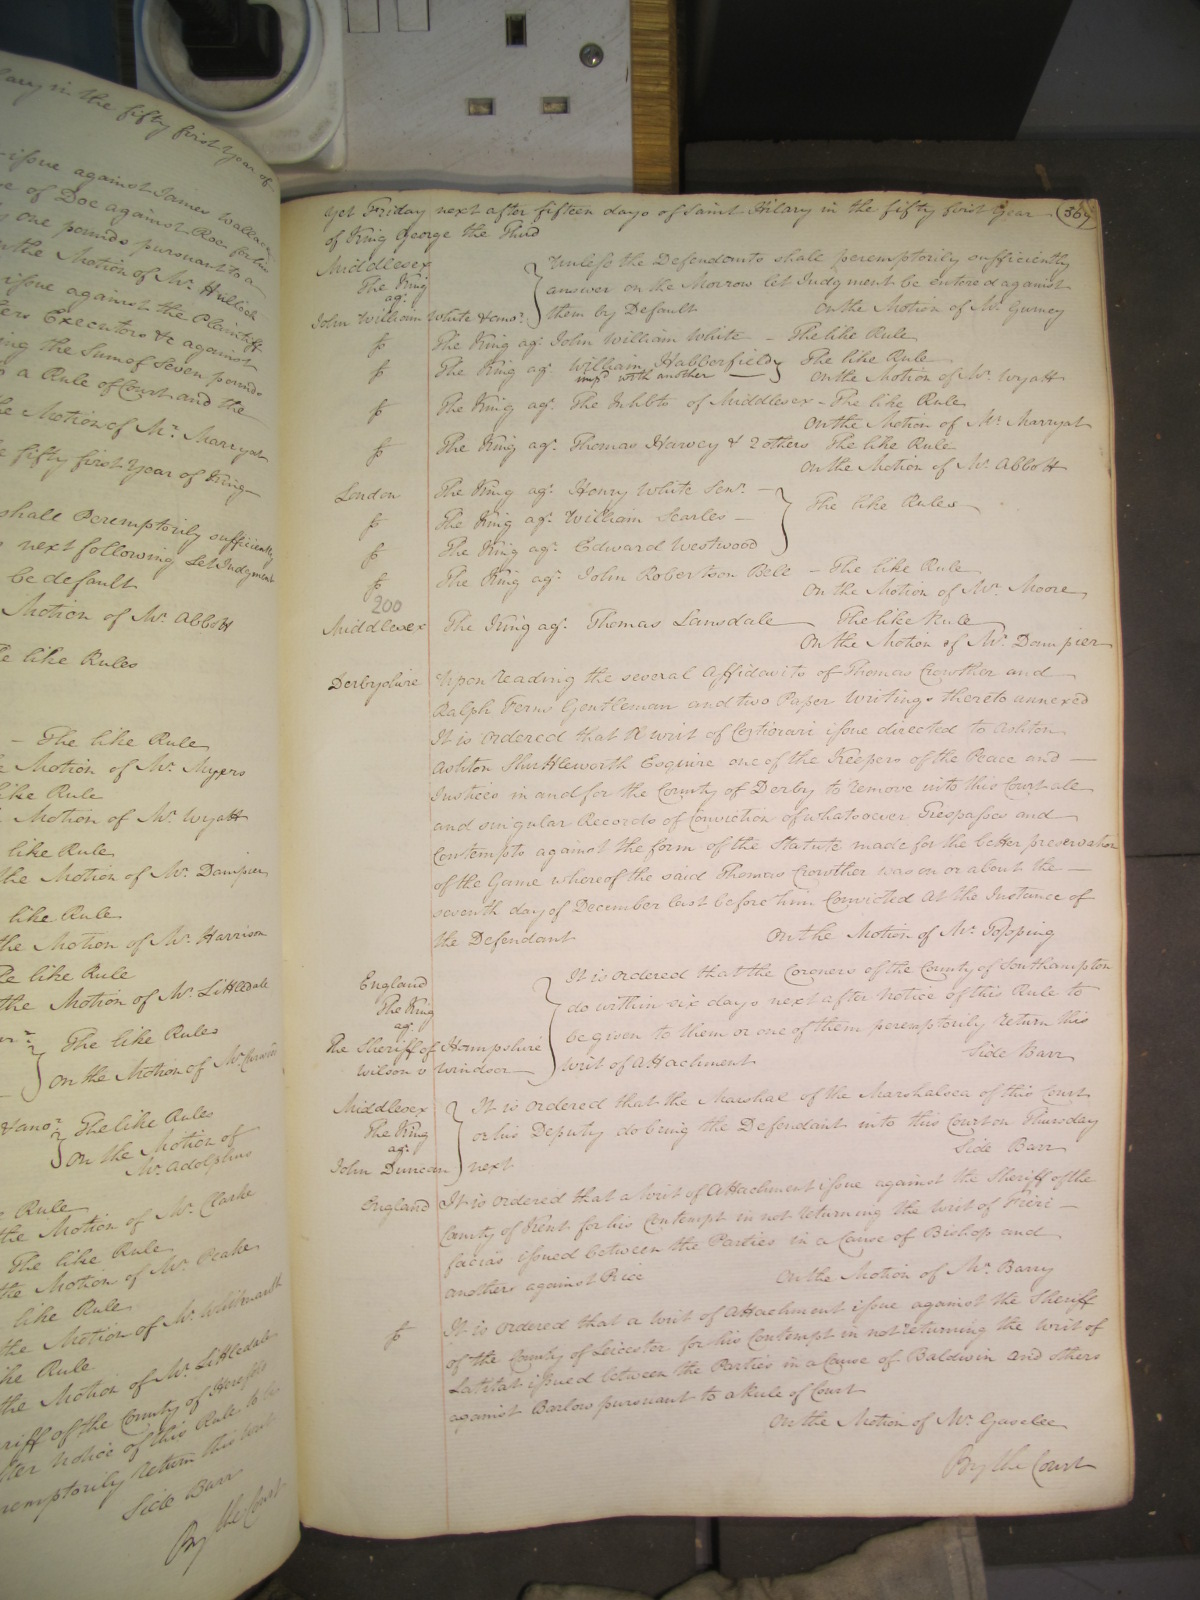 lary in the fifty first Year of
issue against James Wallace
e of Doe against Roe for
one pounds pursuant to a
n the Motion of Mr. Hullock
issue against the Plaintiff
ters Executors &c against
ing the Sum of Seven pounds
o a Rule of Court and the
he Motion of Mr. Marryat
e fifty first Year of King
shall Peremptorily sufficiently
next following Let Judgment
be default
Motion of Mr. Abbott
e like Rules
The like Rule
e Motion of Mr. Myers
like Rule
Motion of Mr. Wyatt
like Rule
the Motion of Mr. Dampier
like Rule
the Motion of Mr. Harrison
e like Rule
the Motion of Mr. Littledale
The like Rules
On the Motion of Mr.
& ano: The like Rules
On the Motion of
Mr. Adolphus
Rule
the Motion of Mr. Clarke
The like Rule
the Motion of Mr. Peake
like Rule
the Motion of Mr.
ke Rule
the Motion of Mr. Littledale
riff of the County of
fter Notice of this Rule to be
remptorily return this writ
Side Barr
By the Court
Yet Friday next after fifteen days of Saint Hilary in the fifty first Year 367
of King George the Third
Middlesex
The King
agt.
John William White & ano:
Unless the Defendants shall peremptorily sufficiently
answer on the Morrow let Judgment be entered against
them by Default On the Motion of Mr. Gurney
The King agt. John William White – The like Rule
The King agt. William Habberfield The like Rule
impd with another On the Motion of Mr. Wyatt
The King agt. The Inhbts of Middlesex – The like Rule
On the Motion of Mr. Marryat
The King agt. Thomas Harvey & 2 others The like Rule
On the Motion of Mr. Abbott
London The King agt. Henry White Senr. –
The King agt. William Searles – The like Rules
The King agt. Edward Westwood
The King agt. John Robertson Bell – The like Rule
On the Motion of Mr. Moore
200
Middlesex The King agt. Thomas Lansdale The like Rule
On the Motion of Mr. Dampier
Derbyshire Upon reading the several Affidavits of Thomas Crowther and
Ralph Ferns Gentleman and two Paper Writings thereto annexed
It is ordered that a writ of Certiorari issue directed to Ashton
Ashton Shuttleworth Esquire one of the Keepers of the Peace and –
Justices in and for the County of Derby to remove into this Court all
and singular Records of Conviction of whatsoever Trespasses and
Contempts against the form of the Statute made for the better preservation
of the Game whereof the said Thomas Crowther was on or about the –
seventh day of December last before him Convicted At the Instance of
the Defendant On the Motion of Mr. Topping
England
The King
agt.
The Sheriff of Hampshire
Wilson v Windsor
It is ordered that the Coroners of the County of Southampton
do within six days next after Notice of this Rule to
be given to them or one of them peremptorily return this
writ of Attachment Side Barr
Middlesex
The King
agt.
John Duncan
It is ordered that the Marshal of the Marshalsea of this Court
or his Deputy do bring the Defendant into this Court on Thursday
next Side Barr
England It is ordered that a Writ of Attachment issue against the Sheriff of the
County of Kent for his Contempt in not returning the Writ of Fieri –
facias issued between the Parties in a Cause of Bishop and
another against Rice On the Motion of Mr. Barry
It is ordered that a Writ of Attachment issue against the Sheriff
of the County of Leicester for his Contempt in not returning the Writ of
Latitat issued between the Parties in a Cause of Baldwin and others
against Barlow pursuant to a Rule of Court
On the Motion of Mr. Gaselee
By the Court